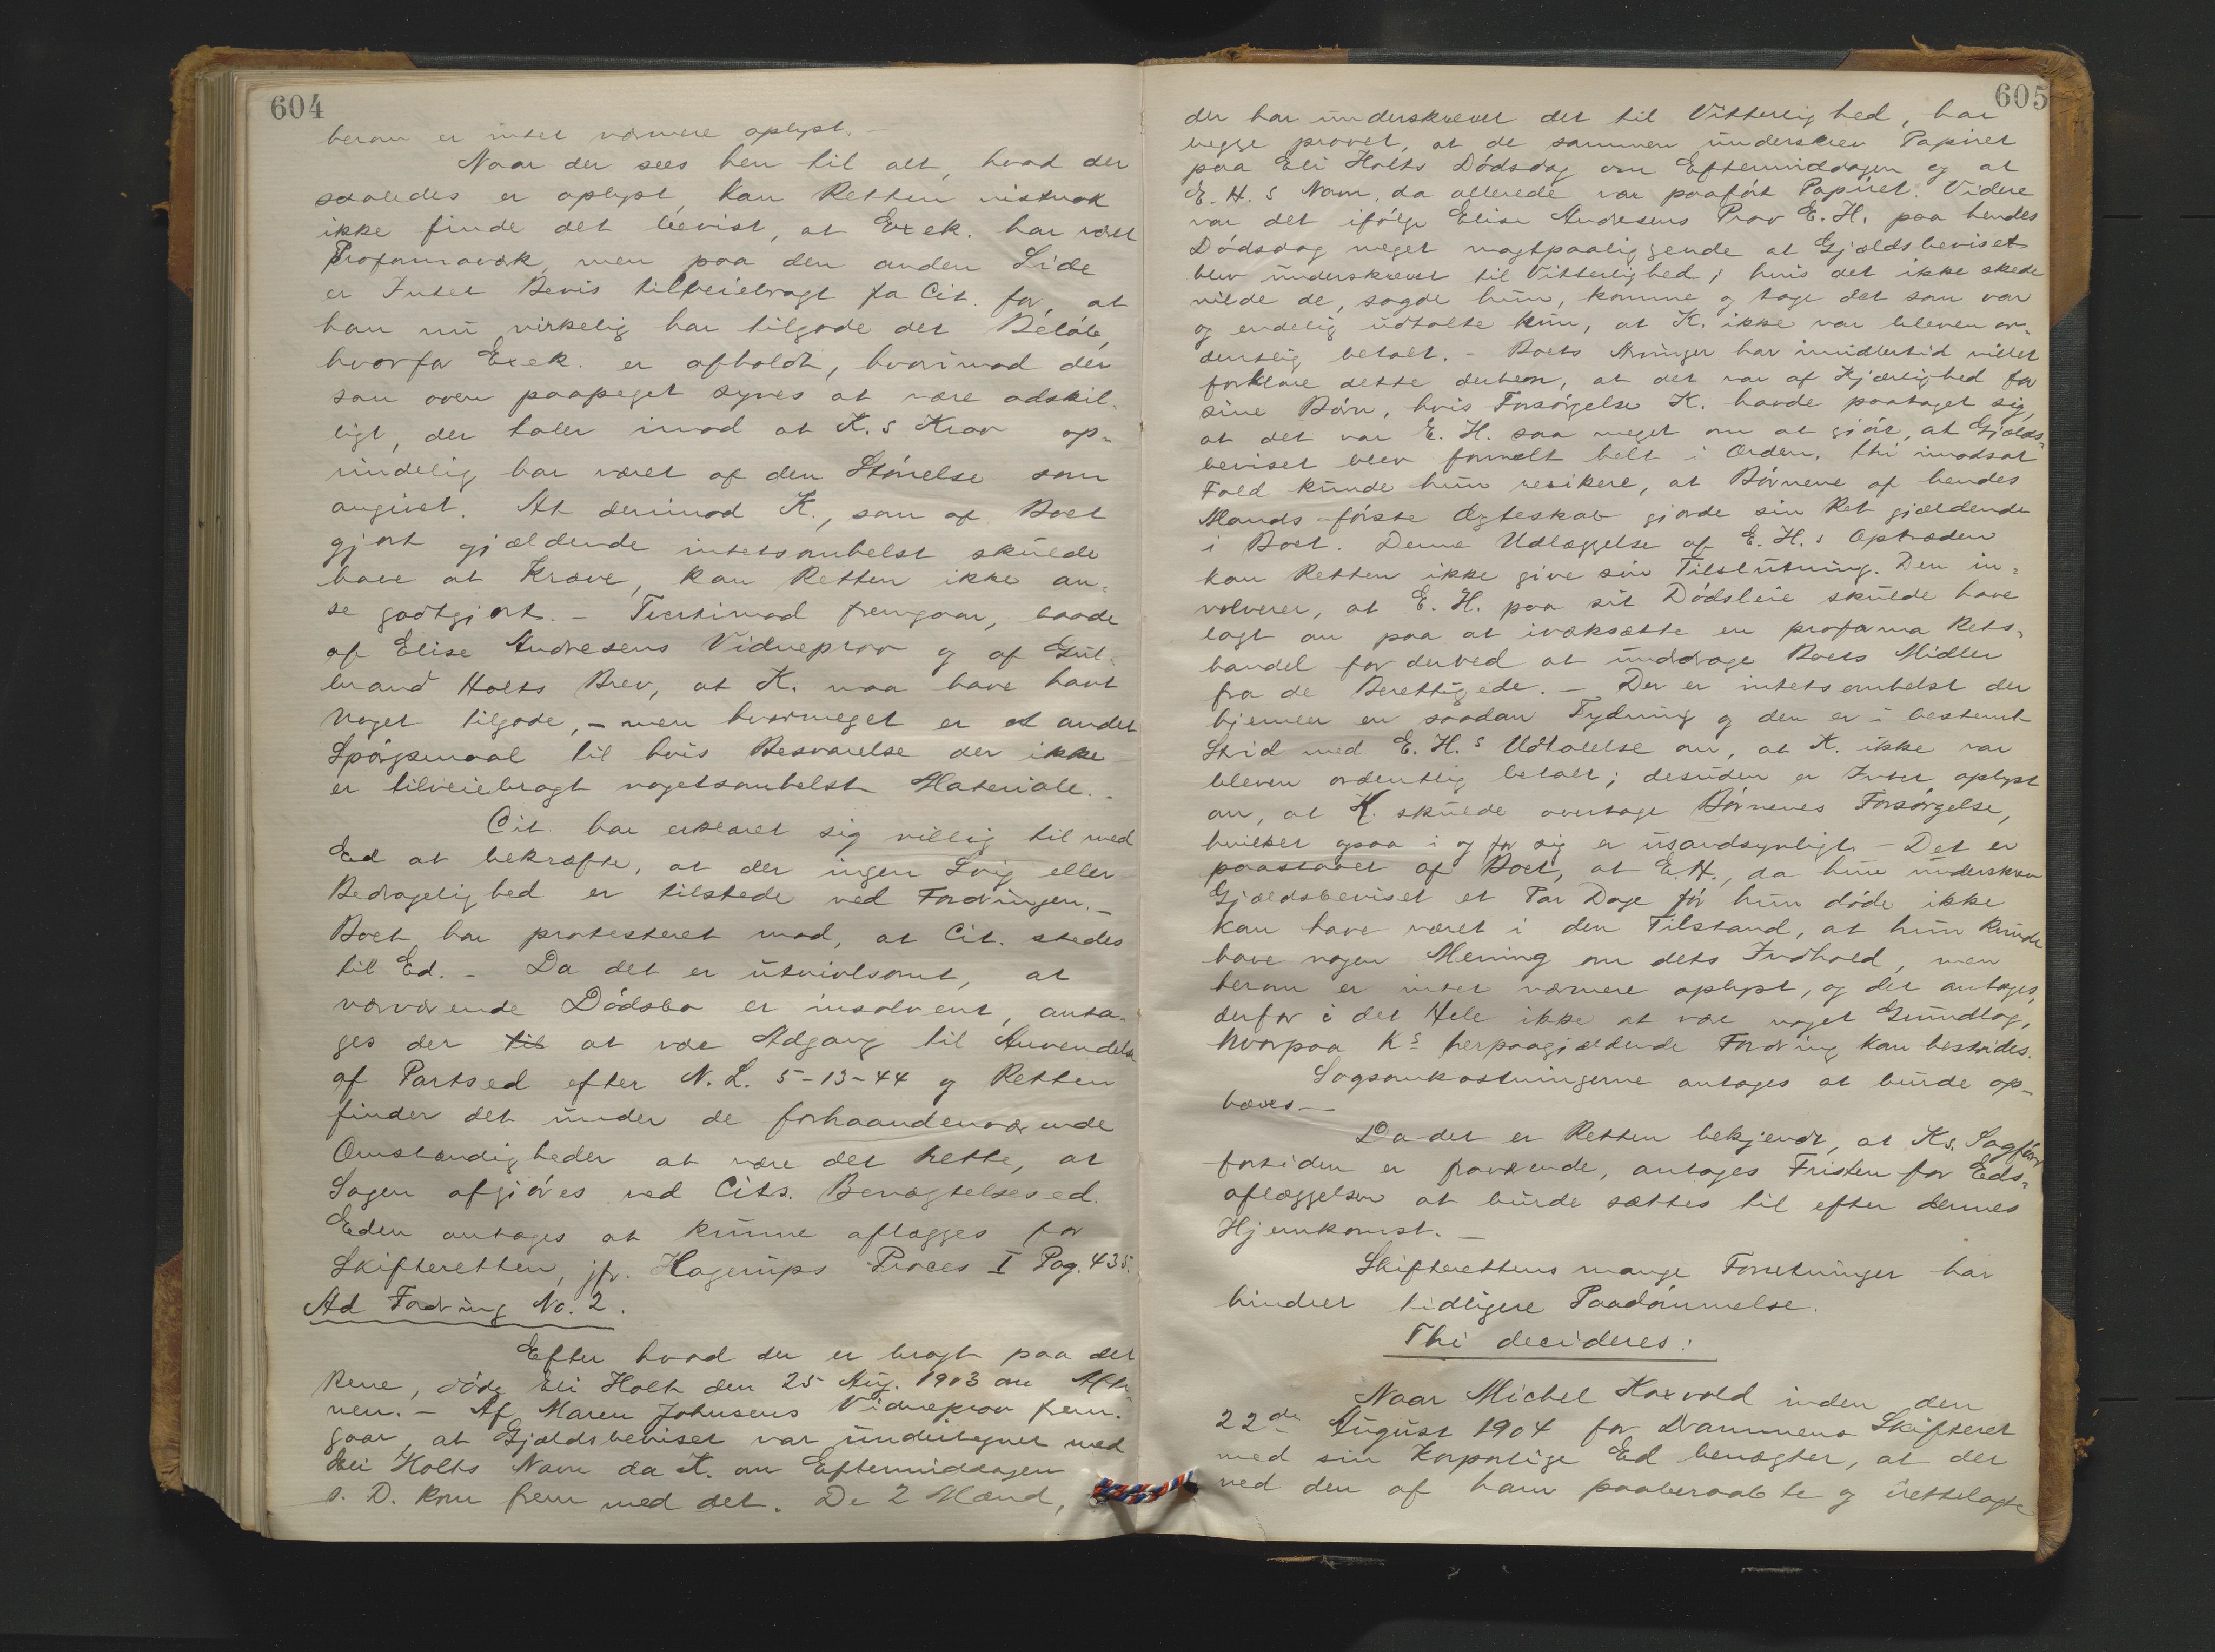 604
herom er intet nærmere oplyst. -
Naar der sees hen til alt, hvad der
saaledes er oplyst, kan Retten vistnok
ikke finde det bevist, at Exek. har været
Proformavæk, men paa den anden Side
er Intet Bevis tilveiebragt fra Cit. for, at
han nu virkelig har tilgode det Beløb,
hvorfor Exek. er afholdt, hvorimod der
som oven paapeget synes at være adskil-
ligt, der taler imod at K.s Krav op-
rindelig har været af den Størrelse som
angivet. At derimod K., som af Boet
gjort gjældende intetsomhelst skulde
have at kræve, kan Retten ikke an-
se godtgjort. - Tvertimod fremgaar, baade
af Elise Andresens Vidneprov og af Gul-
brand Holts Brev, at K. maa have havt
noget tilgode, - men hvormeget er et andet
Spørgsmaal til hvis Besvarelse der ikke
er tilveiebragt nogetsomhelst Materiale. -
Cit. har erklæret sig villig til med
Ed at bekræfte, at der ingen Svig eller
Bedragelighed er tilstede ved Fordringen. -
Boet har protesteret mod, at Cit. stedes
til Ed. - Da det er utvivlsomt, at
nærværende Dødsbo er insolvent, anta-
ges der til at være Adgang til Anvendelse
af Partsed efter N. L. 5-13-44 og Retten
finder det under de forhaandenværende
Omstændigheder at være det rette, at
Sagen afgjøres ved Cits. Benægtelsesed.
Eden antages at kunne aflægges for
Skifteretten, jfr. Hagerups Proces I Pag. 435.
Ad Fordring No. 2.
Efter hvad der er bragt paa det
Rene, døde Eli Holt den 25 Aug. 1903 om Afte-
nen. - Af Maren Johnsens Vidneprov frem-
gaar, at Gjældsbeviset var undertegnet med
Eli Holts Navn da K. om Eftermiddagen
s. D. kom frem med det. De 2 Mænd,
605
der har underskrevet det til Vitterlighed, har
begge provet, at de sammen underskrev Papiret
paa Eli Holts Dødsdag om Eftermiddagen og at
E. H.s Navn da allerede var paaført Papiret. Videre
var det ifølge Elise Andresens Prov E. H. paa hendes
Dødsdag meget magtpaaliggende at Gjældsbeviset
blev underskrevet til Vitterlighed; hvis det ikke skede
vilde de, sagde hun, komme og tage det som var
og endelig udtalte hun, at K. ikke var bleven or-
dentlig betalt. - Boets Arvinger har imidlertid villet
forklare dette derhen, at det var af Kjærlighed for
sine Børn, hvis Forsørgelse K. havde paataget sig,
at det var E. H. saa meget om at gjøre, at Gjælds-
beviset blev formelt helt i Orden, thi imodsat
Fald kunde hun resikere, at Børnene af hendes
Mands første Ægteskab gjorde sin Ret gjældende
i Boet. Denne Udlæggelse af E. H.s Optræden
kan Retten ikke give sin Tilslutning. Den in-
volverer, at E. H. paa sit Dødsleie skulde have
lagt an paa at iværksætte en proforma Rets-
handel for derved at unddrage Boets Midler
fra de Berettigede. - Der er intetsomhelst der
hjemler en saadan Tydning og den er i bestemt
Strid med E. H.s Udtalelse om, at K. ikke var
bleven ordentlig betalt; desuden er Intet oplyst
om, at K. skulde overtage Børnenes Forsørgelse,
hvilket ogsaa i og for sig er usandsynligt. - Det er
paastaaet af Boet, at E. H., da hun underskrev
Gjældsbeviset et Par Dage før hun døde ikke
kan have været i den Tilstand, at hun kunde
have nogen Mening om dets Indhold, men
herom er intet nærmere oplyst, og det antages,
derfor i det Hele ikke at være noget Grundlag,
hvorpaa Ks herpaagjældende Fordring kan bestrides.
Sagsomkostningerne antages at burde op-
hæves. -
Da det er Retten bekjendt, at Ks. Sagfører
fortiden er fraværende, antages Fristen for Eds-
aflæggelsen at burde sættes til efter dennes
Hjemkomst. -
Skifterettens mange Forretninger har
hindret tidligere Paadømmelse.
Thi decideres:
Naar Michel Haxvold inden den
22de August 1904 for Drammens Skifteret
med sin korporlige Ed benægter, at der
ved den af ham paaberaabte og irettelagte